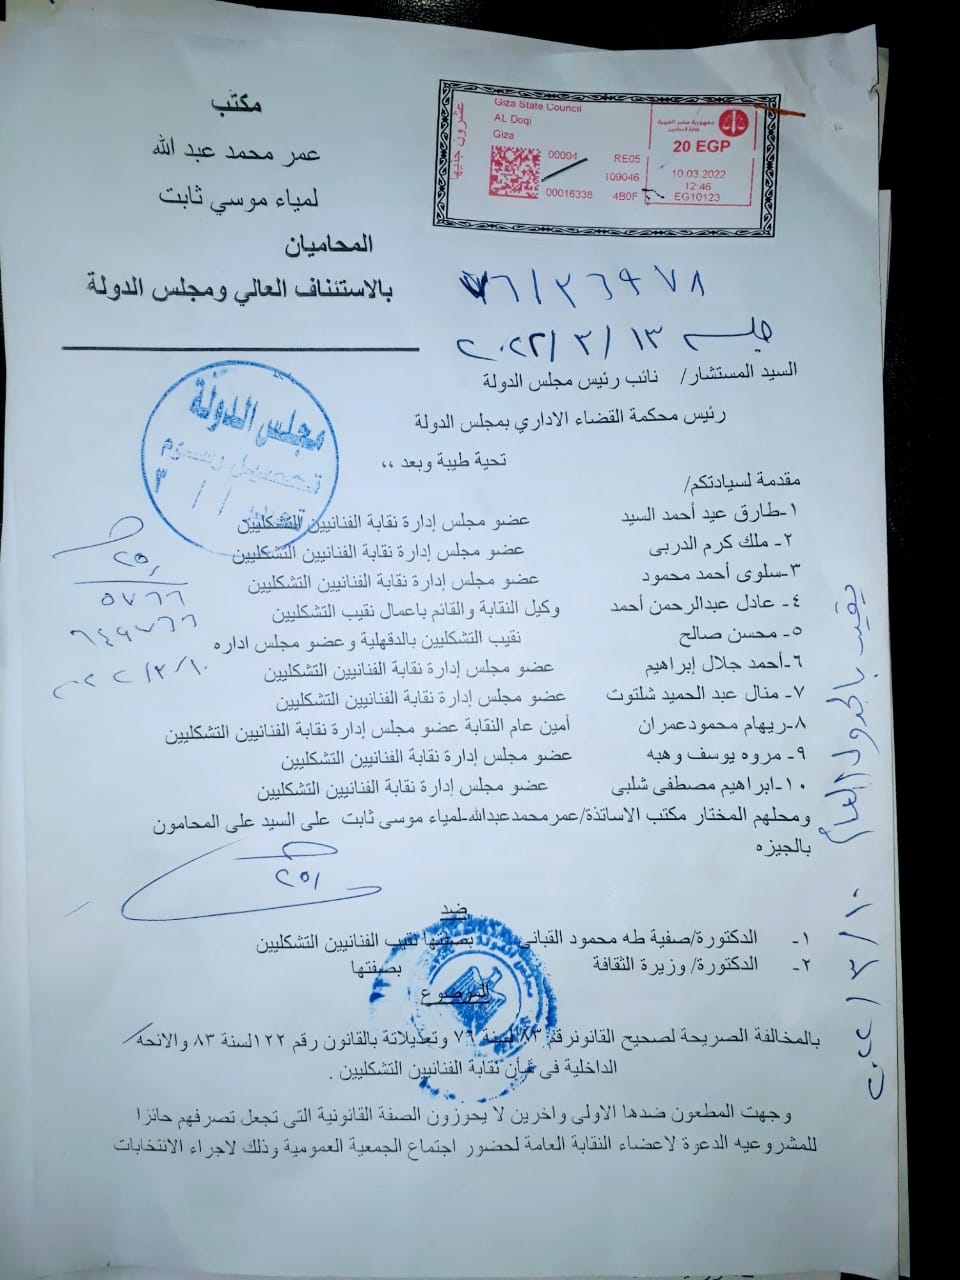 مكتب
عمر محمد عبد الله
لمياء موسي ثابت
المحاميان
بالاستئناف العالي ومجلس الدولة
عشرون جنيها
Giza State Council
AL Doqi
Giza
00004
00016338
RE05
109046
4B0F
جمهورية مصر العربية
نقابة المحامين
20 EGP
10.03.2022
12:46
EG10123
٧٦/٣٦٩٧٨
جلسة ١٣/٣/٢٠٢٢
السيد المستشار/ نائب رئيس مجلس الدولة
رئيس محكمة القضاء الاداري بمجلس الدولة
تحية طيبة وبعد ،،
مجلس الدولة
تحصيل رسوم
٣
مقدمة لسيادتكم/
١-طارق عيد أحمد السيد عضو مجلس إدارة نقابة الفنانيين التشكليين
٢- ملك كرم الدربى عضو مجلس إدارة نقابة الفنانيين التشكليين
٣-سلوى أحمد محمود عضو مجلس إدارة نقابة الفنانيين التشكليين
٤- عادل عبدالرحمن أحمد وكيل النقابة والقائم باعمال نقيب التشكليين
٥- محسن صالح نقيب التشكليين بالدقهلية وعضو مجلس اداره
٦-أحمد جلال إبراهيم عضو مجلس إدارة نقابة الفنانيين التشكليين
٧- منال عبد الحميد شلتوت عضو مجلس إدارة نقابة الفنانيين التشكليين
٨-ريهام محمودعمران أمين عام النقابة عضو مجلس إدارة نقابة الفنانيين التشكليين
٩- مروه يوسف وهبه عضو مجلس إدارة نقابة الفنانيين التشكليين
١٠-ابراهيم مصطفى شلبى عضو مجلس إدارة نقابة الفنانيين التشكليين
ومحلهم المختار مكتب الاساتذة/عمرمحمدعبدالله-لمياء موسى ثابت على السيد على المحامون
بالجيزه
٥٧٦٦
٦٤٩٧٦٦
٢٠٢٢/٣/١٠
يقيد بالجدول العام
٢٠٢٢/٣/١٠
ضد
١- الدكتورة/صفية طه محمود القبانى بصفتها نقيب الفنانيين التشكليين
٢- الدكتورة/ وزيرة الثقافة بصفتها
الموضوع
بالمخالفة الصريحة لصحيح القانونرقم ٨٣ لسنة ٧٦ وتعديلاتة بالقانون رقم ١٢٢لسنة ٨٣ والانحه
الداخلية فى شأن نقابة الفنانيين التشكليين .
وجهت المطعون ضدها الاولى واخرين لا يحوزون الصفة القانونية التى تجعل تصرفهم حائزا
للمشروعيه الدعوة لاعضاء النقابة العامة لحضور اجتماع الجمعية العمومية وذلك لاجراء الانتخابات